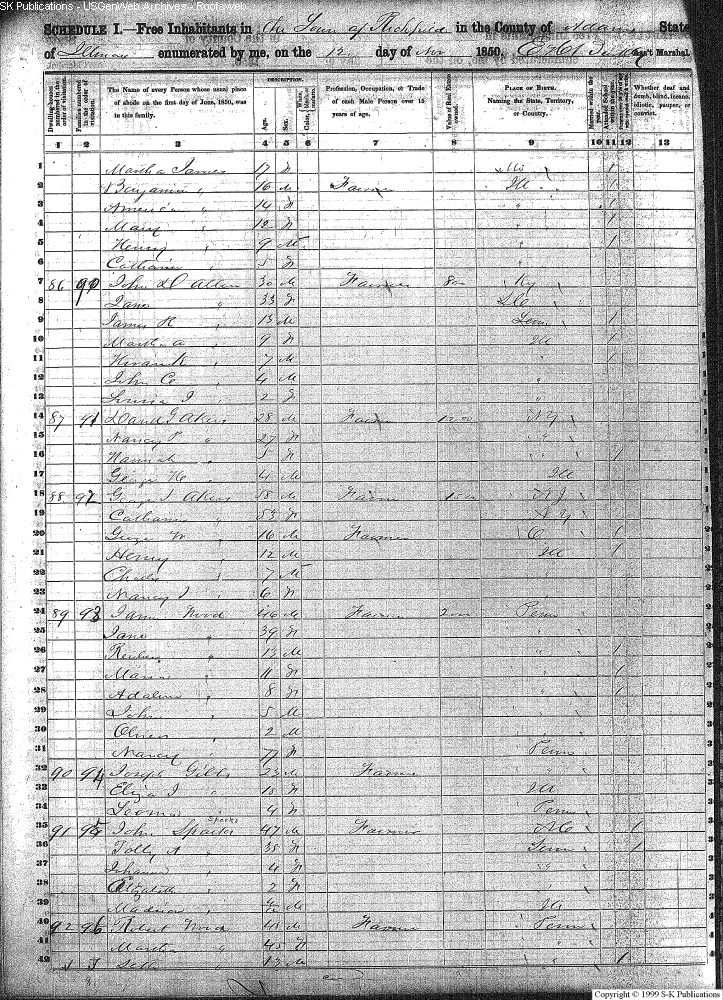 SK Publications - USGenWeb Archives - Rootsweb
SCHEDULE I.—Free Inhabitants in the Town of Richfield in the County of Adams State
of Illinois enumerated by me, on the 12 day of Nov 1850. Ass't Marshal.
Dwelling-houses numbered in the order of visitation.
Families numbered in the order of visitation.
The Name of every Person whose usual place of abode on the first day of June, 1850, was in this family.
DESCRIPTION.
Age.
Sex.
White, black, or mulatto.
Profession, Occupation, or Trade of each Male Person over 15 years of age.
Value of Real Estate owned.
PLACE OF BIRTH.
Naming the State, Territory, or Country.
Married within the year.
Attended School within the year.
Whether deaf and dumb, blind, insane, idiotic, pauper, or convict.
1 2 3 4 5 6 7 8 9 10 11 12 13
1 Martha James 17 F Mo 1
2 Benjamin " 16 M Farmer Ill 1
3 America " 14 F " 1
4 Mary " 12 F " 1
5 Henry " 9 M " 1
6 " 5 F "
7 86 90 John D 30 M Farmer 800 Ky
8 Jane " 33 F
9 James R " 13 M Tenn 1
10 Martha A " 9 F Ill 1
11 " 7 M " 1
12 John C " 4 M "
13 Louisa J " 2 F "
14 87 91 David Akers 28 M Farmer 1200 N Y
15 Nancy " 27 F "
16 Hannah " 5 F " 1
17 George H " 4 M Ill
18 88 92 George J Akers 58 M Farmer 1500 N J
19 Catharine " 53 F N Y
20 George W " 16 M Farmer O 1
21 Henry " 12 M Ill 1
22 Charles " 7 M "
23 Nancy J " 6 F "
24 89 93 James Wood 46 M Farmer 2000 Penn
25 Jane " 39 F "
26 Reuben " 13 M " 1
27 Maria " 11 F " 1
28 Adaline " 8 F " 1
29 John " 5 M "
30 Oliver " 2 M "
31 Nancy " 77 F Penn
32 90 94 Joseph Gibbs 23 M Farmer "
33 Eliza J " 18 F Ill
34 " 4 F Penn
Sparks
35 91 95 John Sparks 47 M Farmer 1
36 Polly A " 35 F Tenn 1
37 Johanna " 4 F "
38 Elizabeth " 2 F "
39 Madison " M Ill
40 92 96 Robert Wood 45 M Farmer Penn
41 Martha " 45 F "
42 " 13 M " 1
Copyright © 1999 S-K Publications